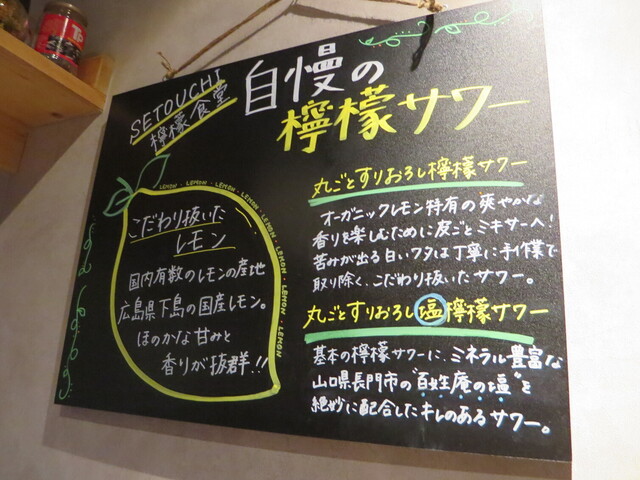 SETOUCHI
檸檬食堂
自慢の
檸檬サワー
LEMON・LEMON・LEMON・LEMON・LEMON・LEMON・LEMON・LEMON・LEMON
こだわり抜いた
レモン
国内有数のレモンの産地
広島県下島の国産レモン。
ほのかな甘みと
香りが抜群!!
丸ごとすりおろし檸檬サワー
オーガニックレモン特有の爽やかな
香りを楽しむために皮ごとミキサーへ!
苦みが出る白いワタは丁寧に手作業で
取り除く、こだわり抜いたサワー。
丸ごとすりおろし塩檸檬サワー
基本の檸檬サワーに、ミネラル豊富な
山口県長門市の"百姓庵の塩"を
絶妙に配合したキレのあるサワー。